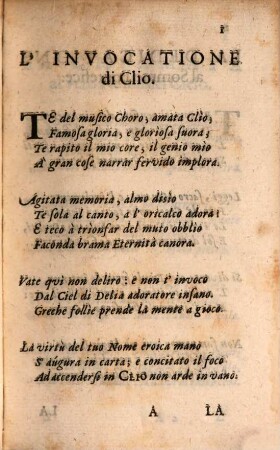 1
L' INVOCATIONE
di Clio.
TE del musico Choro, amata Clio,
Famosa gloria, e gloriosa suora;
Te rapito il mio core, il genio mio
A gran cose narrar fervido implora.
Agitata memoria, almo disio
Te sola al canto, a l' oricalco adora:
E teco à trionfar del muto obblio
Faconda brama Eternità canora.
Vate qui non deliro: e non t' invoco
Dal Ciel di Delia adoratore insano.
Greche follie prende la mente a gioco.
La virtù del tuo Nome eroica mano
S' augura in carta; e concitato il foco
Ad accendersi in CLIO non arde in vano.
A LA